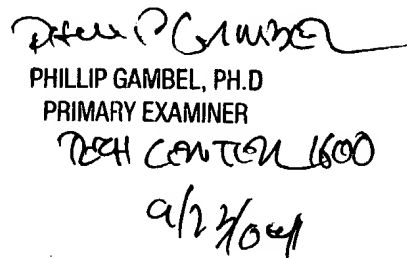 Phillip Gambel
PHILLIP GAMBEL, PH.D
PRIMARY EXAMINER
TECH CENTER 1600
9/27/04